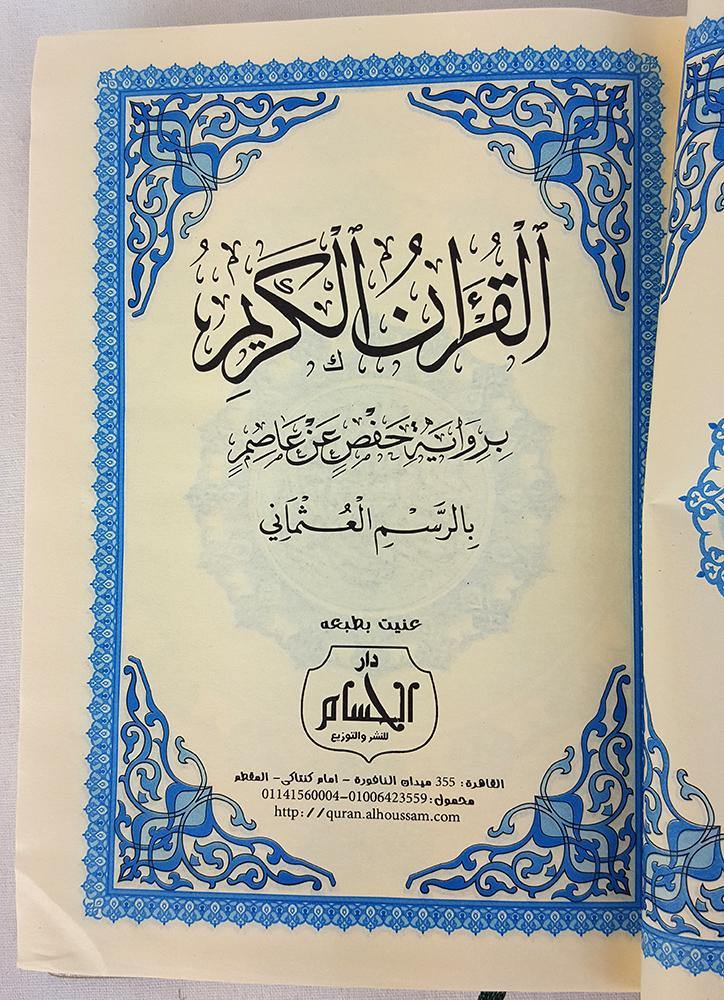 الْقُرْءَانُ الْكَرِيمُ
بِرِوَايَةِ حَفْصٍ عَنْ عَاصِمٍ
بِالرَّسْمِ الْعُثْمَانِي
عنيت بطبعه
دار
الحسام
للنشر والتوزيع
القاهرة: 355 ميدان النافورة - امام كنتاكي - المقطم
محمول: 01006423559-01141560004
http://quran.alhoussam.com